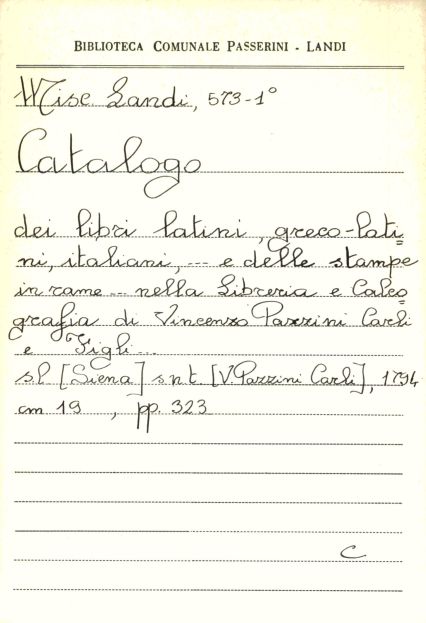 BIBLIOTECA COMUNALE PASSERINI - LANDI
Misc Landi, 573-1°
Catalogo
dei libri latini, greco-lati=
ni, italiani, ... e delle stampe
in rame ... nella Libreria e Calco=
grafia di Vincenzo Pazzini Carli
e Figli...
sl [Siena] s n t [V. Pazzini Carli], 1794
cm 19, pp. 323
C